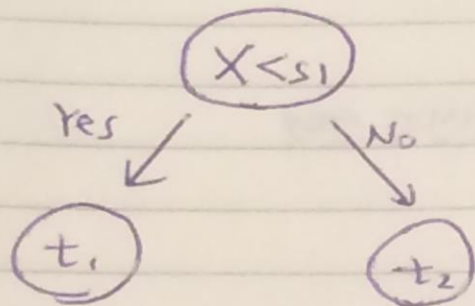 X<s1
Yes No
t1 t2